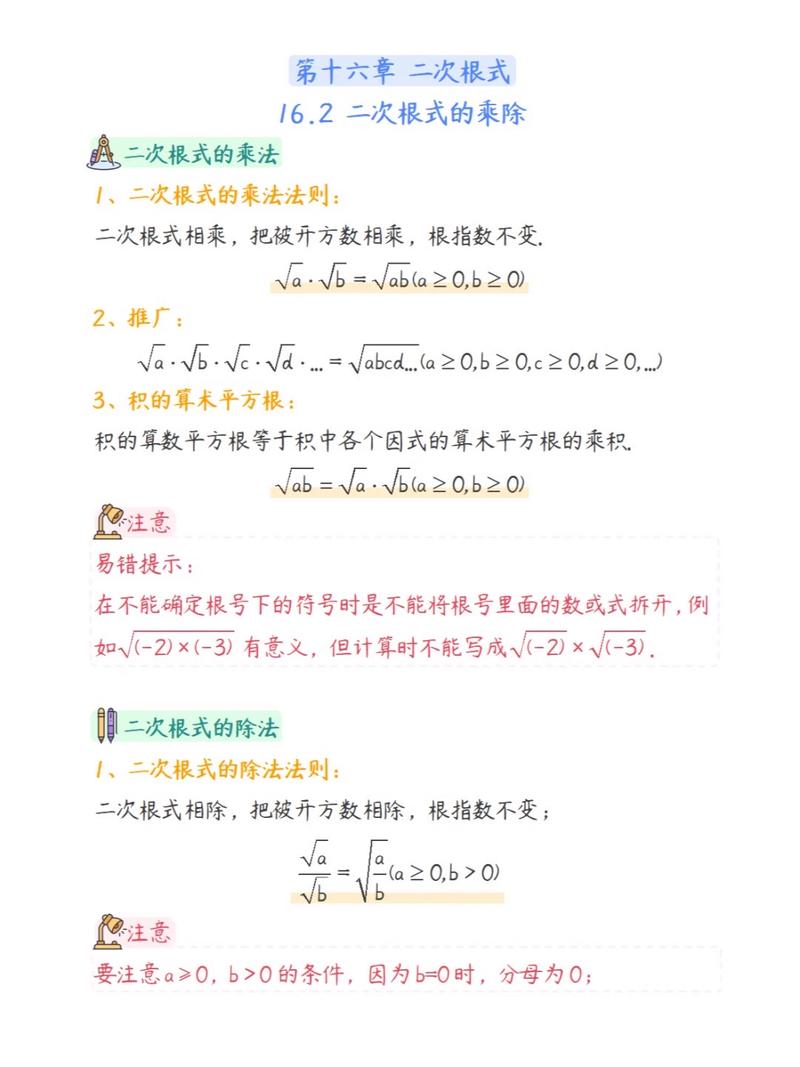 第十六章 二次根式
16.2 二次根式的乘除
二次根式的乘法
1、二次根式的乘法法则：
二次根式相乘，把被开方数相乘，根指数不变.
√a·√b=√ab(a≥0,b≥0)
2、推广：
√a·√b·√c·√d·...=√abcd...(a≥0,b≥0,c≥0,d≥0,...)
3、积的算术平方根：
积的算数平方根等于积中各个因式的算术平方根的乘积.
√ab=√a·√b(a≥0,b≥0)
注意
易错提示：
在不能确定根号下的符号时是不能将根号里面的数或式拆开，例
如√(-2)×(-3) 有意义，但计算时不能写成√(-2)×√(-3).
二次根式的除法
1、二次根式的除法法则：
二次根式相除，把被开方数相除，根指数不变；
√a/√b=√(a/b)(a≥0,b>0)
注意
要注意a≥0，b>0的条件，因为b=0时，分母为0；